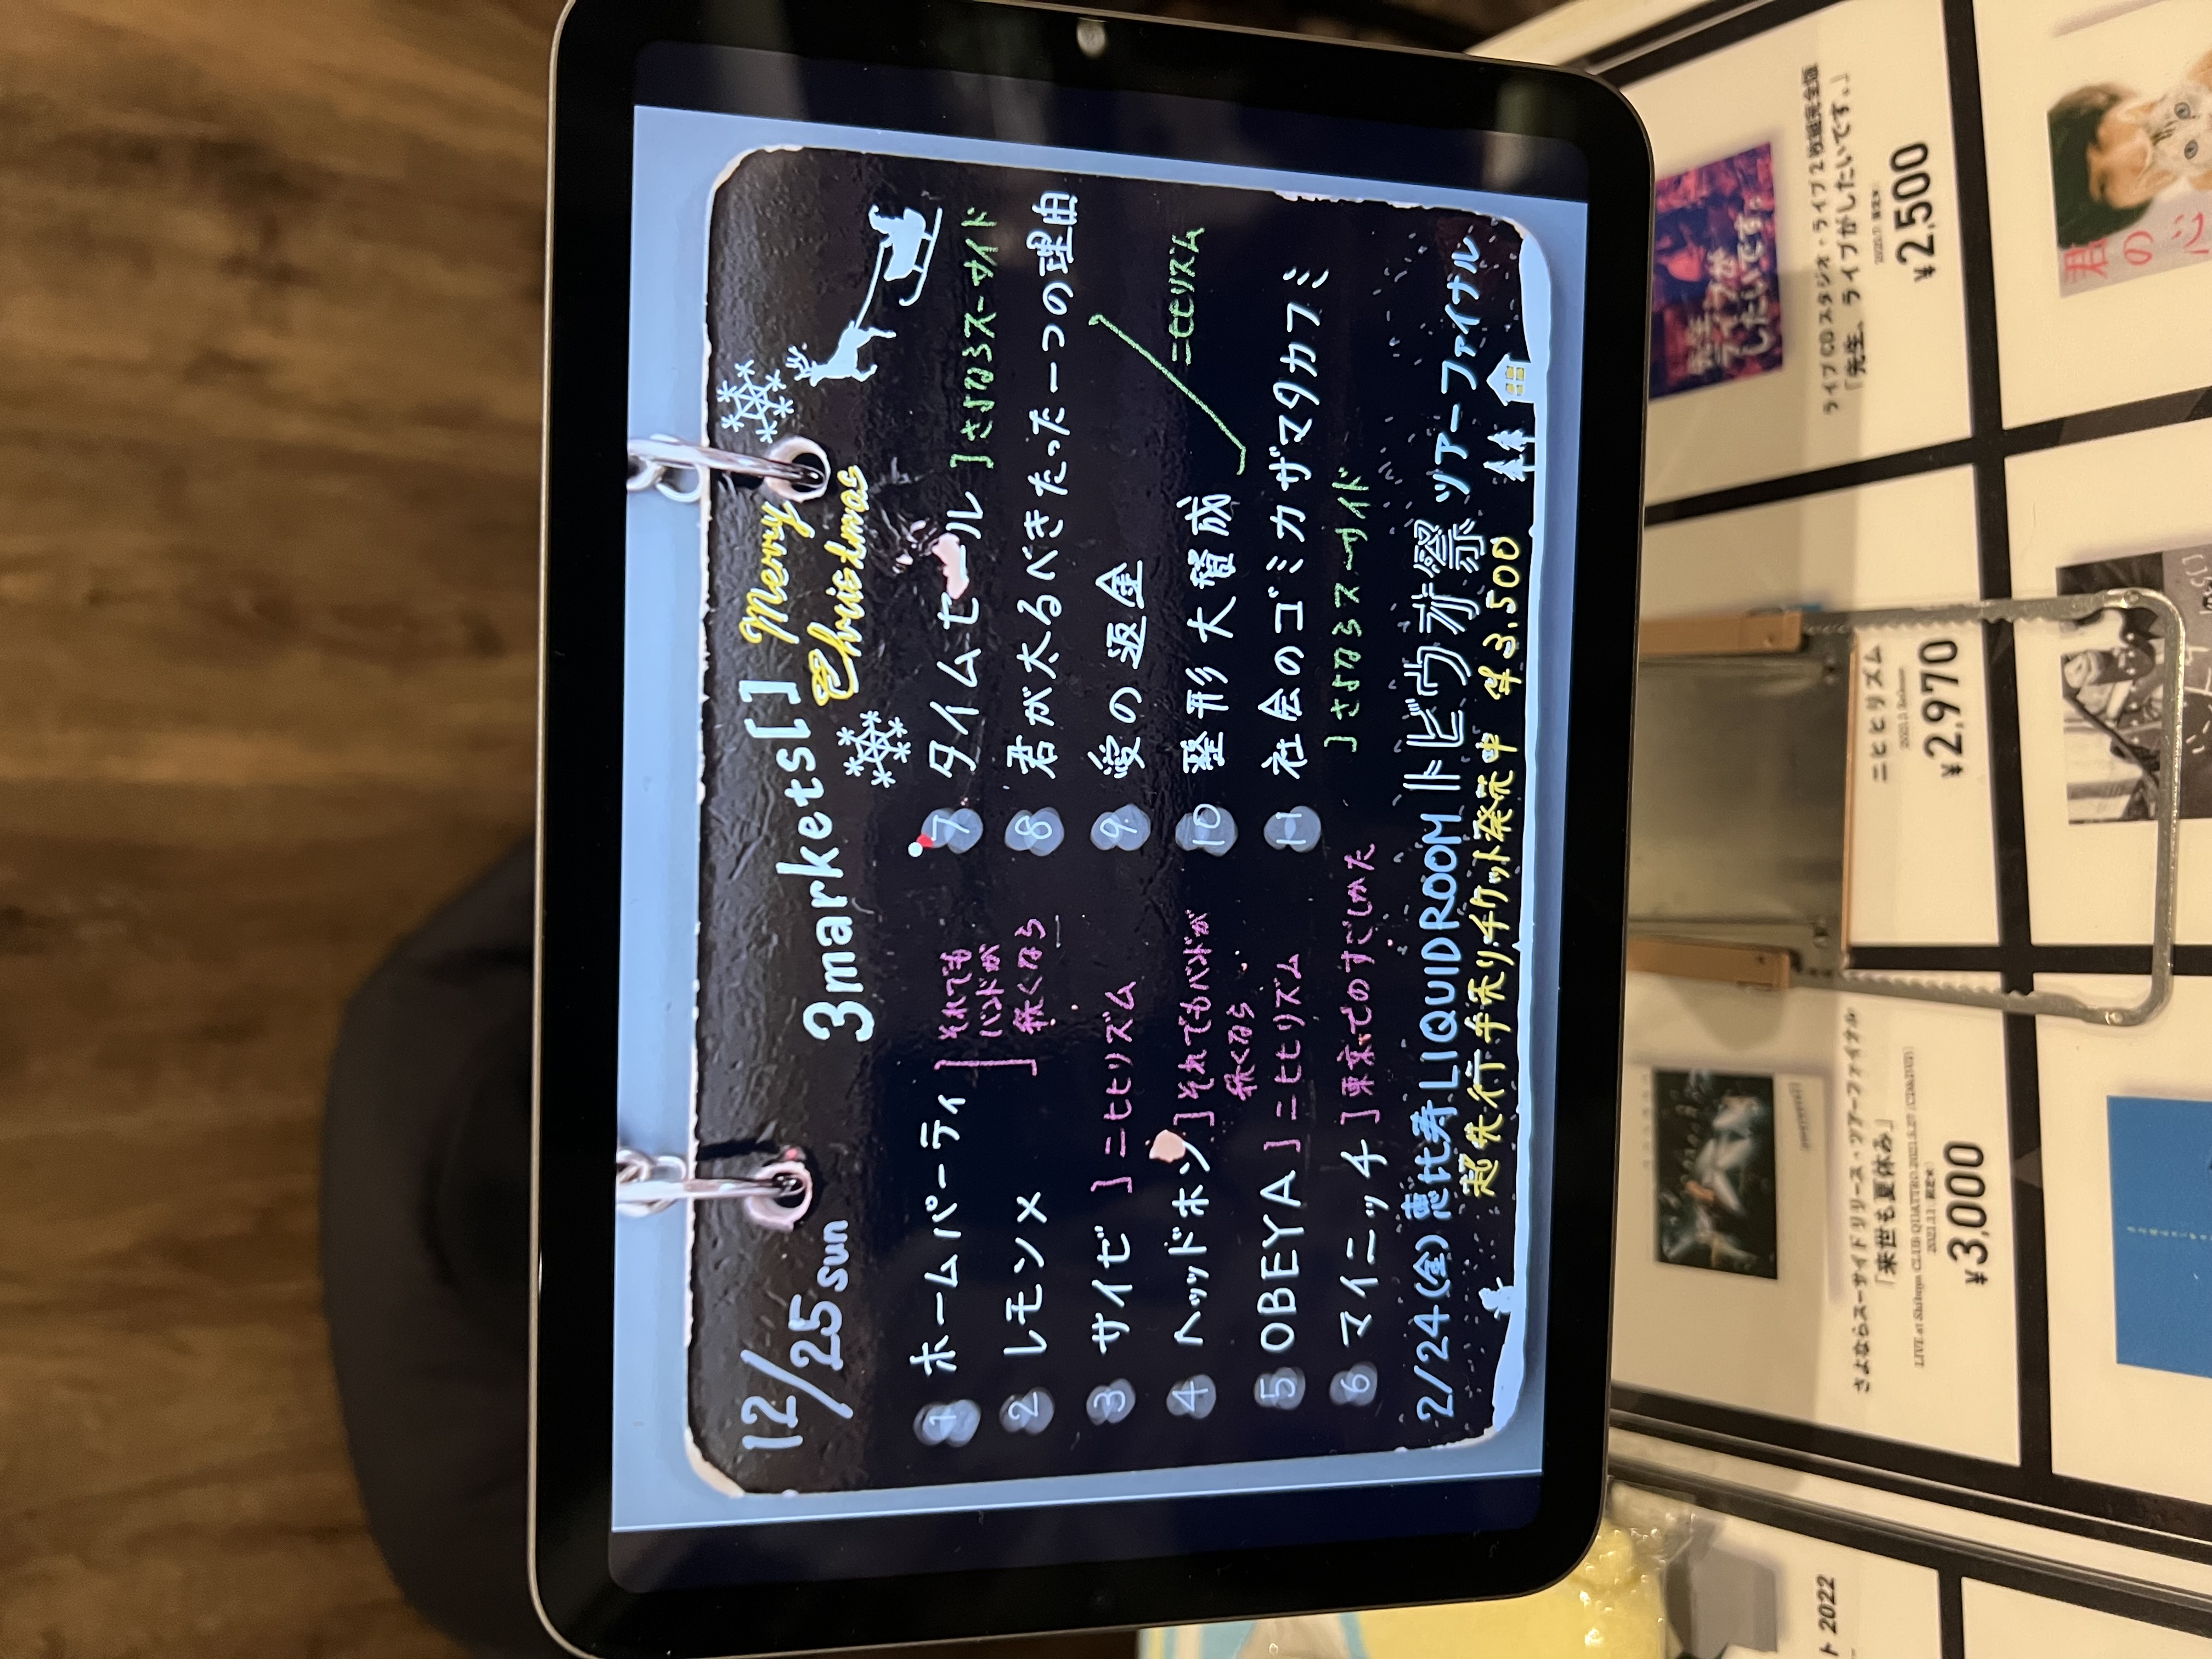 12/25 sun
3markets[]
Merry
Christmas
1 ホームパーティ
2 レモン×
それでも
バンドが
続くなら
3 サイゼ ニヒヒリズム
4 ヘッドホン それでもバンドが
続くなら
5 OBEYA ニヒヒリズム
6 マイニッチ 東京でのすごしかた
7 タイムセール さよならスーサイド
8 君が太るべきたった一つの理由
9 愛の返金
10 整形大賛成
ニヒヒリズム
11 社会のゴミカザマタカフミ
さよならスーサイド
2/24(金) 恵比寿 LIQUIDROOM トビウオ祭 ツアーファイナル
超先行手売りチケット発売中 ¥3,500
ト 2022
さよならスーサイドリリース・ツアーファイナル
「来世も夏休み」
LIVE at Shibuya CLUB QUATTRO 2021.5.27 (CD&DVD)
¥3,000
ニヒヒリズム
¥2,970
先生、
ライブが
したいです。
ライブCD スタジオ・ライブ2枚組完全版
「先生、ライブがしたいです。」
¥2,500
君
の
心